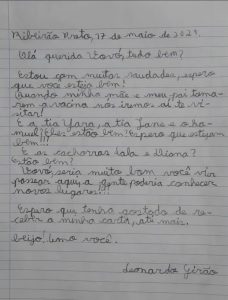 Ribeirão Preto, 17 de maio de 2021.
Olá querida Vovó, tudo bem?
Estou com muitas saudades, espero
que você esteja bem!
Quando minha mãe e meu pai toma-
rem a vacina nós iremos aí te vi-
sitar!
E a tia Yara, a tia Jane e o
muel? Eles estão bem? Espero que estejam
bem!!!
E as cachorras Lala e Diana?
Estão bem?
Vovó, seria muito bom você vir
passear aqui, a gente poderia conhecer
novos lugares!!!
Espero que tenha gostado de re-
ceber a minha carta, até mais.
beijo! amo você.
Leonardo Girão